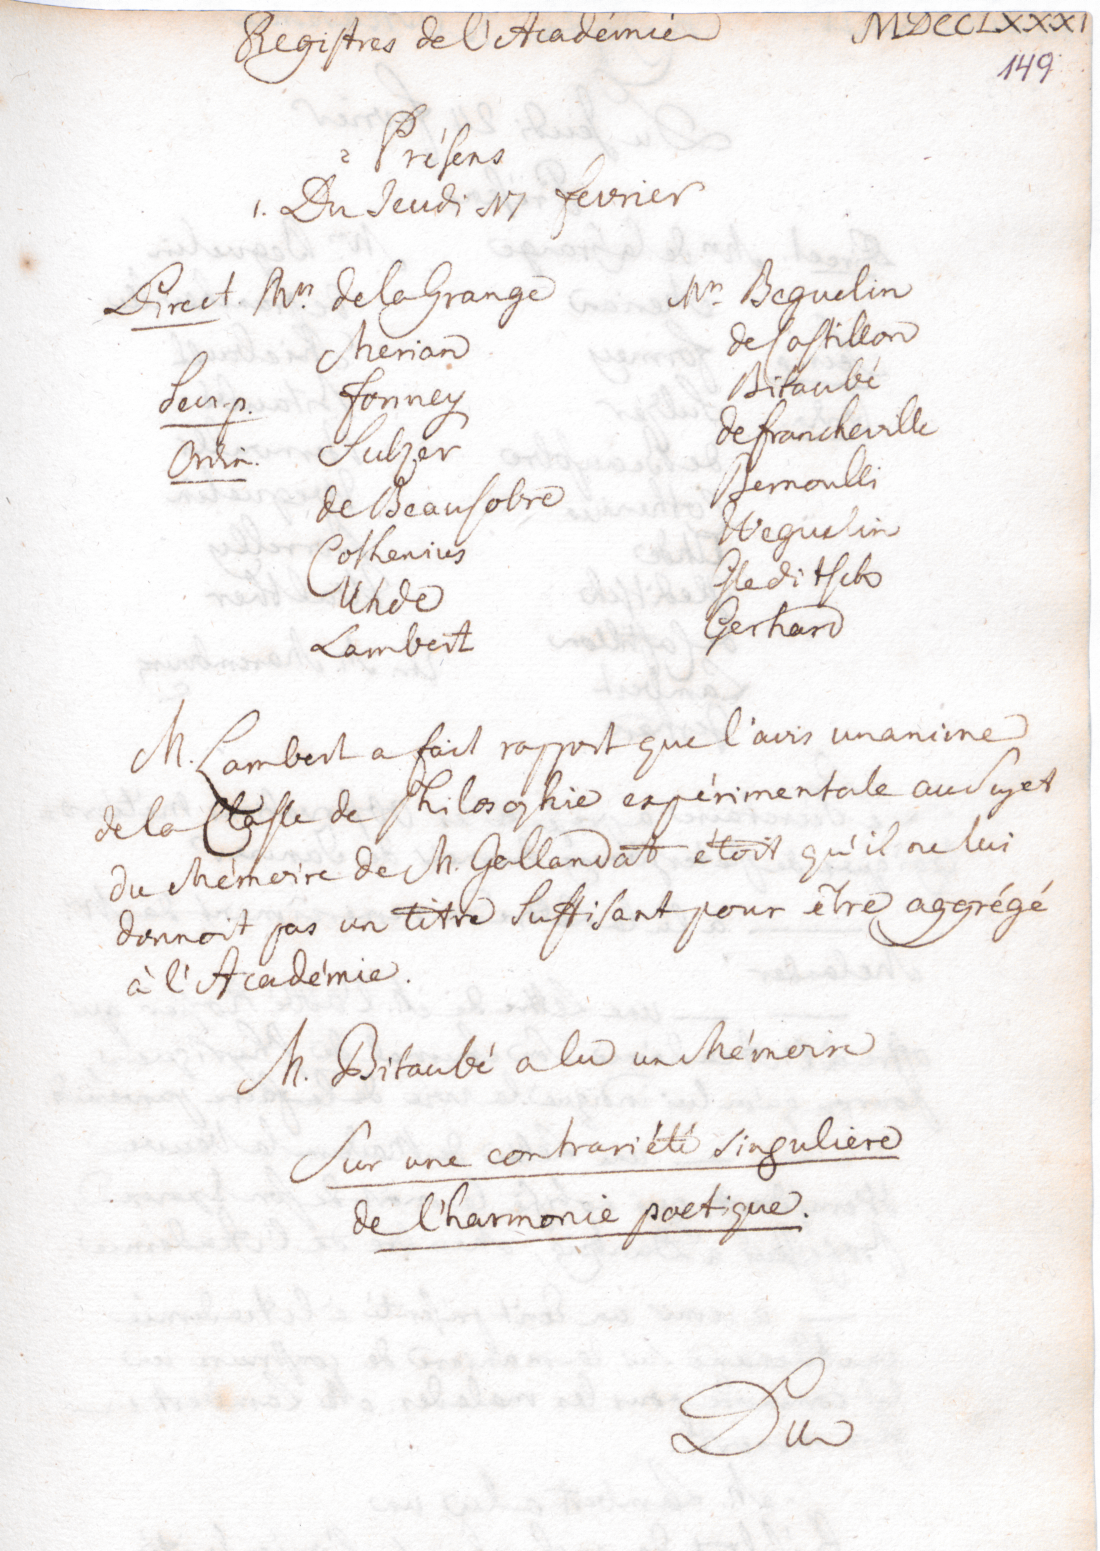 Registres de l'Académie MDCCLXXXI
149
2 Présens
1. Du Jeudi 17 fevrier
Direct. Mrs. de la Grange
Merian
Secr. p. formey
Ordin. Sulzer
de Beausobre
Cothenius
Uhde
Lambert
Mrs. Beguelin
de Castillon
Bitaubé
de francheville
Bernoulli
Weguelin
Gleditsch
Gerhard
M. Lambert a fait rapport que l'avis unanime
de la Classe de Philosophie expérimentale au Sujet
du Mémoire de M. Gallandat étoit qu'il ne lui
donnoit pas un titre Suffisant pour être aggrégé
à l'Académie.
M. Bitaubé a lu un Mémoire
Sur une contrariété singuliere
de l'harmonie poetique.
Du